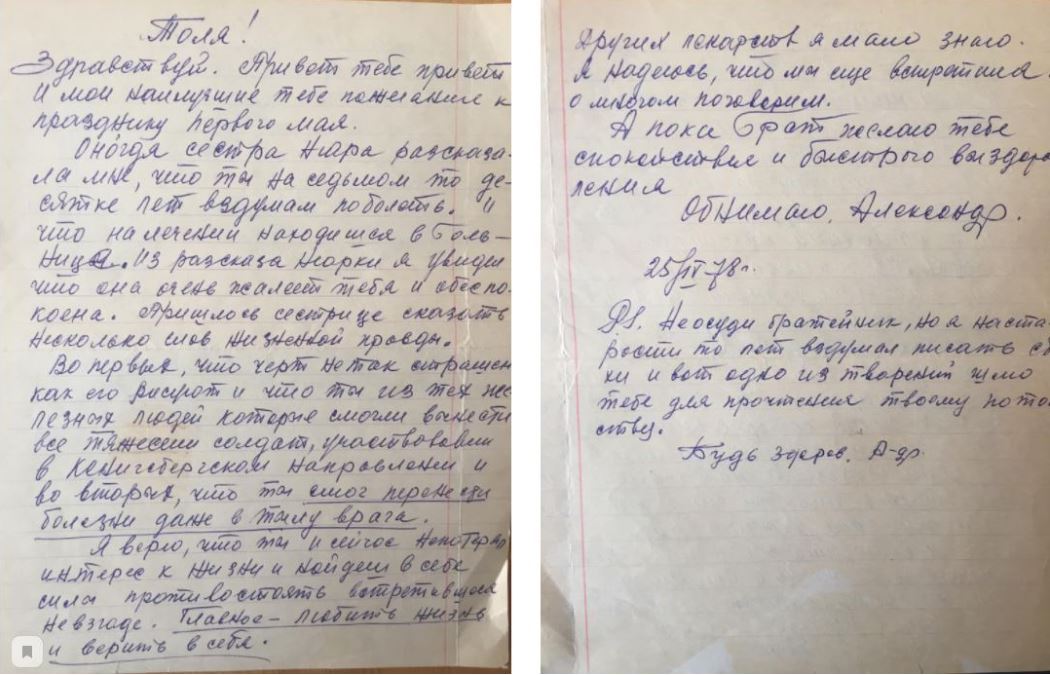 Толя!
Здравствуй. Привет тебе привет
и мои наилучшие тебе пожелание к
празднику первого мая.
Оногда сестра Нара рассказа-
ла мне, что ты на седьмом то де-
сятке лет вздумал поболеть. И
что на лечении находишся в боль-
нице. Из рассказа Нарки я увидел
что она очень жалеет тебя и обеспо-
коена. Пришлось сестрице сказать
несколько слов жизненной правды.
Во первых, что черт не так страшен
как его рисуют и что ты из тех же-
лезных людей которые смогли вынести
все тяжести солдат, участвовавши
в Кенигсбергском направлении и
во вторых, что ты смог перенести
болезни даже в тылу врага.
Я верю, что ты и сейчас непотерял
интерес к жизни и найдеш в себе
сила противостоять встретившася
невзгоде. Главное - любить жизнь
и верить в себя.
Других лекарств я мало знаю.
Я надеюсь, что мы еще встретимся
о многом поговорим.
А пока брат желаю тебе
спокойствие и быстрого выздоро
ления
Обнимаю. Александр.
25/IV-78г.
PS. Неосуди братейник, но я наста
рости то лет вздумал писать сти
хи и вот одно из творений шлю
тебе для прочтения твоему пото
ству.
Будь здоров. А-др.